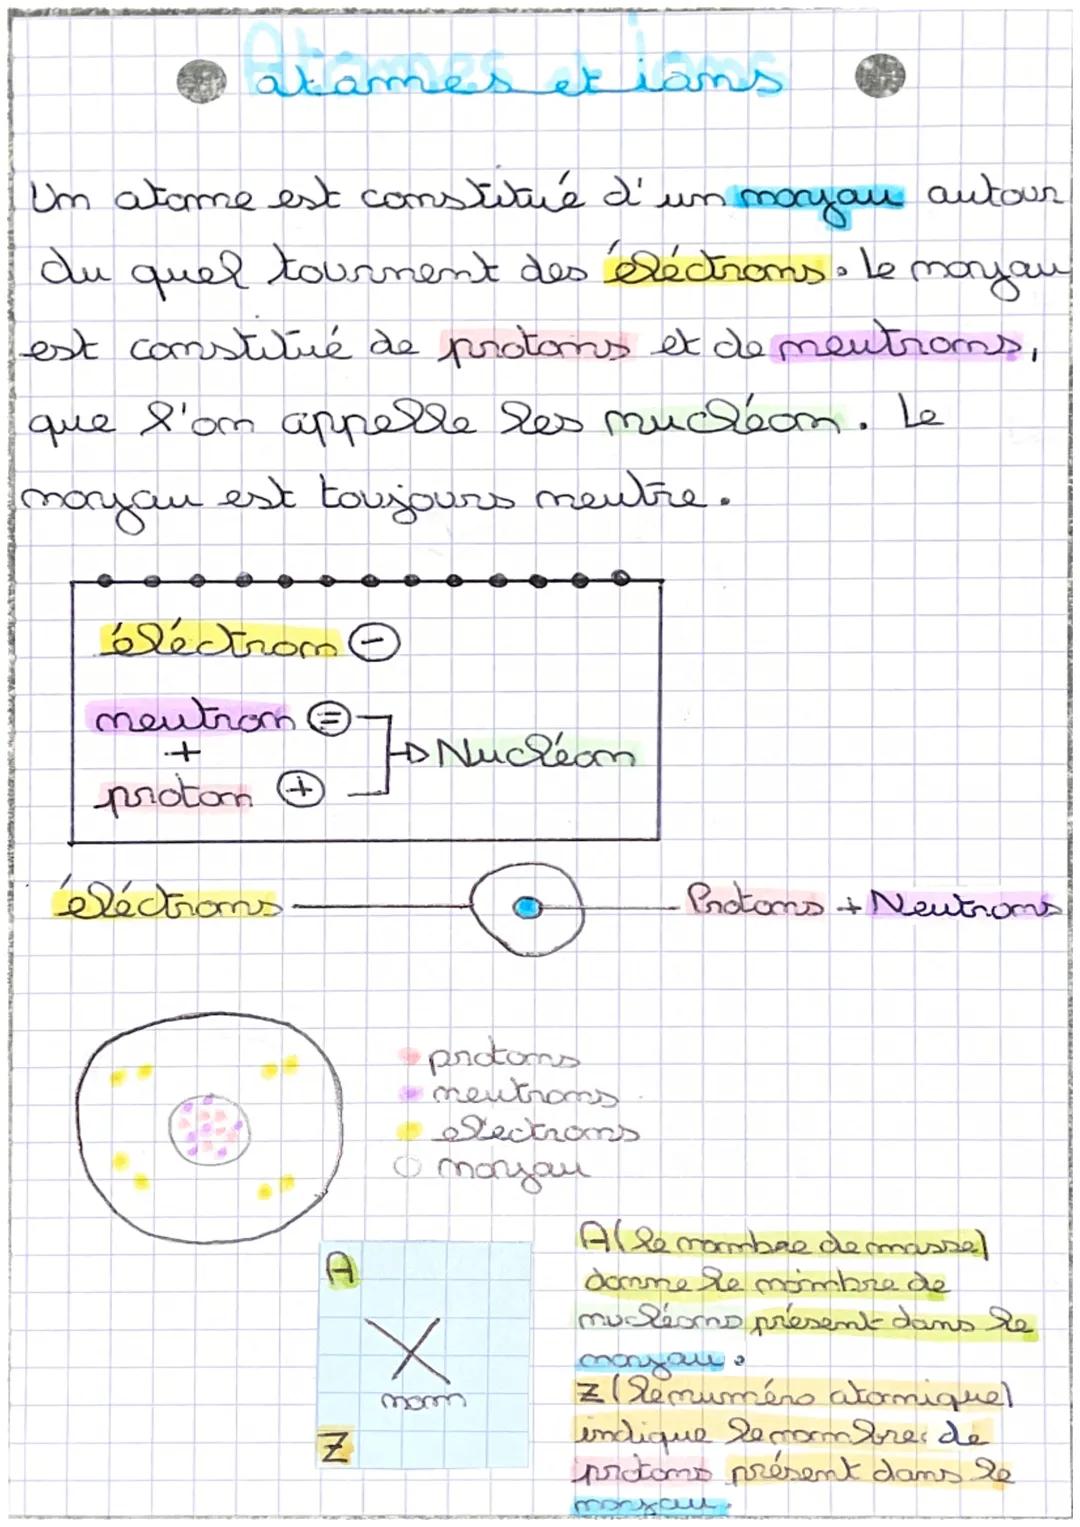 Atomes et ions
atomes et ions
Un atome est constitué d'un noyau autour
du quel tournent des éléctrons. Le noyau
est constitué de protons et de neutrons,
que l'on appelle les nucléon. Le
noyau est toujours neutre.
éléctron -
neutron =
+
Nucléon
proton +
éléctrons
Protons + Neutrons
protons
neutrons
electrons
noyau
A
X
nom
Z
A (le nombre de masse)
donne le nombre de
nucléons présent dans le
noyau.
Z (le numéro atomique)
indique le nombre de
protons présent dans le
noyau.